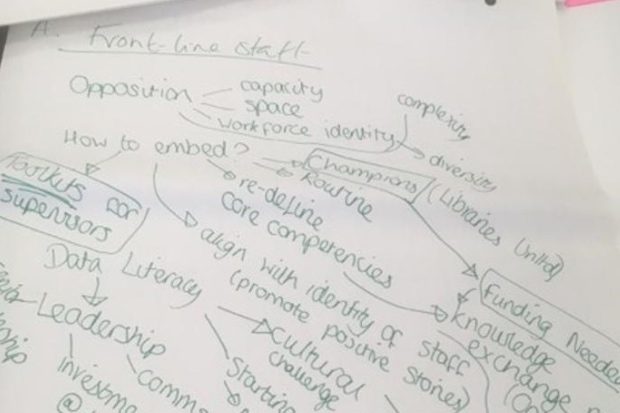 A. Front-line staff
Opposition
capacity
space
workforce identity
complexity
diversity
How to embed?
Champions (Libraries United)
Routine
re-define
core competencies
Toolkits for
supervisors
align with identity of staff
(promote positive stories)
Funding Needed
knowledge
exchange
Data Literacy
Leadership
cultural
challenge
Starting
@